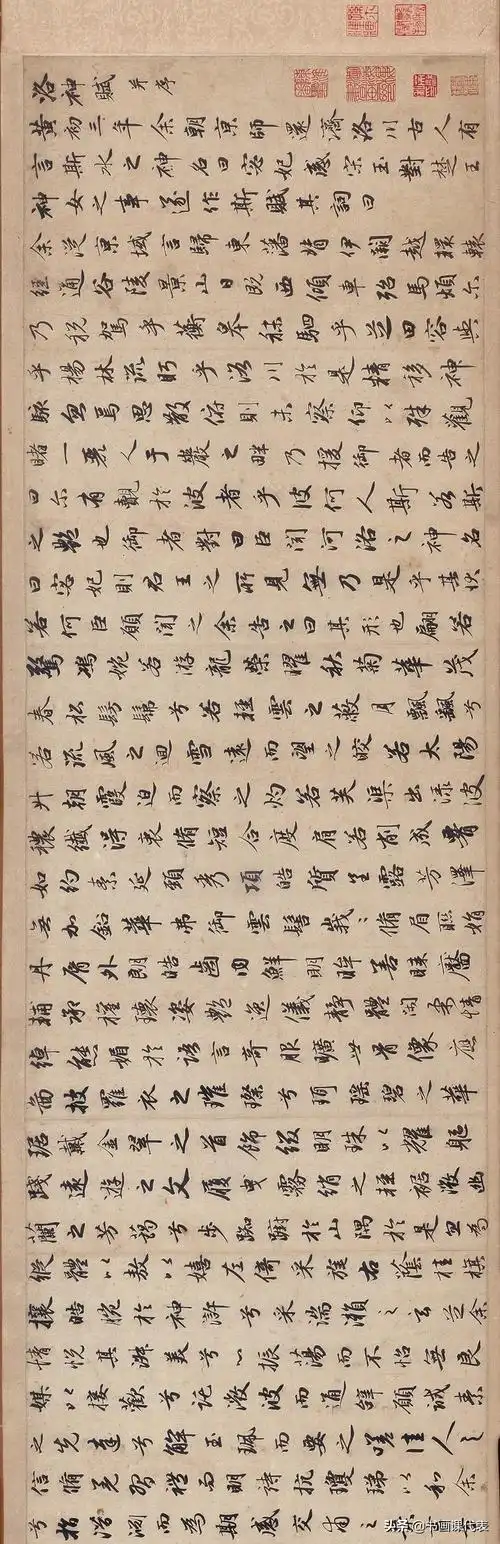 洛神賦 并序
黃初三年余朝京師還濟洛川古人有
言斯水之神名曰宓妃感宋玉對楚王
神女之事遂作斯賦其詞曰
余從京域言歸東藩背伊闕越轘轅
經通谷陵景山日既西傾車殆馬煩尓
乃稅駕乎蘅皋秣駟乎芝田容與
乎楊林流眄乎洛川於是精移神
駭忽焉思散俯則未察仰以殊觀
睹一麗人于巖之畔乃援御者而告之
曰尓有覿於彼者乎彼何人斯若斯
之艷也御者對曰臣聞河洛之神名
曰宓妃則君王之所見無乃是乎其狀
若何臣願聞之余告之曰其形也翩若
驚鴻婉若游龍榮曜秋菊華茂
春松髣髴兮若輕雲之蔽月飄颻兮
若流風之迴雪遠而望之皎若太陽
升朝霞迫而察之灼若芙蕖出淥波
穠纖得衷脩短合度肩若削成腰
如約素延頸秀項皓質呈露芳澤
無加鉛華弗御雲髻峩〻脩眉聯娟
丹脣外朗皓齒內鮮明眸善睞靨
輔承權瓌姿艷逸儀靜體閑柔情
綽態媚於語言奇服曠世骨像應
圖披羅衣之璀璨兮珥瑤碧之華
琚戴金翠之首飾綴明珠以耀軀
踐遠遊之文履曳霧綃之輕裾微幽
蘭之芳藹兮步踟躕於山隅於是忽焉
縱體以敖以嬉左倚采旄右蔭桂旗
攘皓腕於神滸兮采湍瀨之玄芝余
情悅其淑美兮心振蕩而不怡無良
媒以接歡兮託微波而通辭願誠素
之先達兮解玉珮而要之嗟佳人之
信脩羌習禮而明詩抗瓊珶以和余
兮指潛淵而為期感交甫之
头条@书画课代表